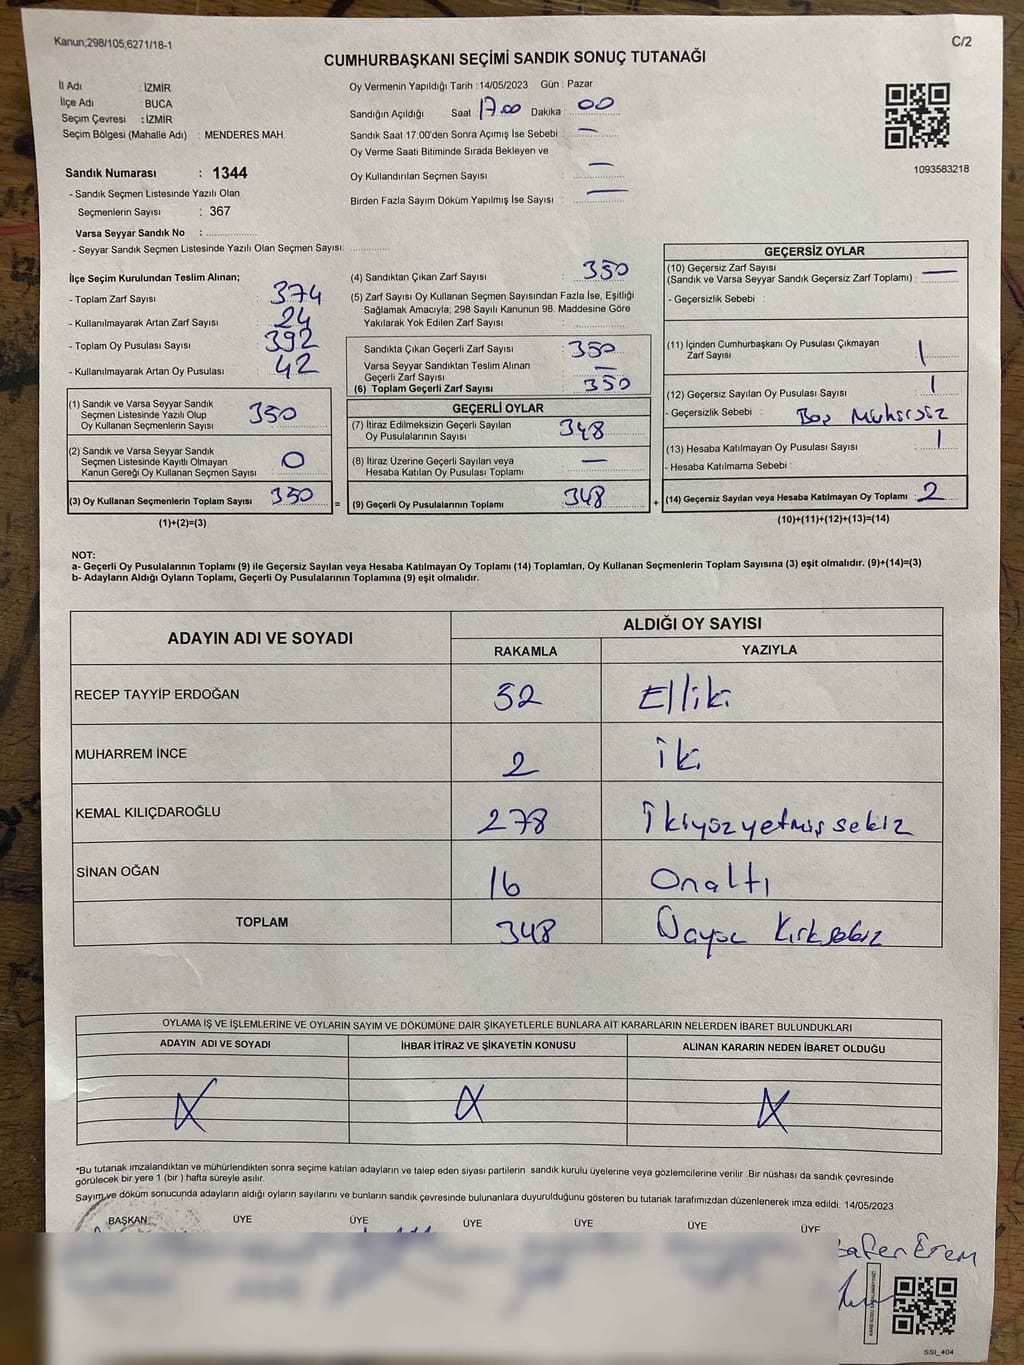 Kanun;298/105,6271/18-1
C/2
CUMHURBAŞKANI SEÇİMİ SANDIK SONUÇ TUTANAĞI
İl Adı : İZMİR
İlçe Adı : BUCA
Seçim Çevresi : İZMİR
Seçim Bölgesi (Mahalle Adı) : MENDERES MAH.
Oy Vermenin Yapıldığı Tarih : 14/05/2023 Gün : Pazar
Sandığın Açıldığı Saat 17.00 Dakika : 00
Sandık Saat 17:00'den Sonra Açımış İse Sebebi : —
Oy Verme Saati Bitiminde Sırada Bekleyen ve
Oy Kullandırılan Seçmen Sayısı : —
Birden Fazla Sayım Döküm Yapılmış İse Sayısı : —
1093583218
Sandık Numarası : 1344
- Sandık Seçmen Listesinde Yazılı Olan
Seçmenlerin Sayısı : 367
Varsa Seyyar Sandık No :
- Seyyar Sandık Seçmen Listesinde Yazılı Olan Seçmen Sayısı:
İlçe Seçim Kurulundan Teslim Alınan;
- Toplam Zarf Sayısı : 374
- Kullanılmayarak Artan Zarf Sayısı : 24
- Toplam Oy Pusulası Sayısı : 392
- Kullanılmayarak Artan Oy Pusulası : 42
(1) Sandık ve Varsa Seyyar Sandık
Seçmen Listesinde Yazılı Olup
Oy Kullanan Seçmenlerin Sayısı : 350
(2) Sandık ve Varsa Seyyar Sandık
Seçmen Listesinde Kayıtlı Olmayan
Kanun Gereği Oy Kullanan Seçmen Sayısı : 0
(3) Oy Kullanan Seçmenlerin Toplam Sayısı : 350 =
(1)+(2)=(3)
(4) Sandıktan Çıkan Zarf Sayısı : 350
(5) Zarf Sayısı Oy Kullanan Seçmen Sayısından Fazla İse, Eşitliği
Sağlamak Amacıyla; 298 Sayılı Kanunun 98. Maddesine Göre
Yakılarak Yok Edilen Zarf Sayısı :
Sandıkta Çıkan Geçerli Zarf Sayısı : 350
Varsa Seyyar Sandıktan Teslim Alınan
Geçerli Zarf Sayısı : —
(6) Toplam Geçerli Zarf Sayısı : 350
GEÇERLİ OYLAR
(7) İtiraz Edilmeksizin Geçerli Sayılan
Oy Pusulalarının Sayısı : 348
(8) İtiraz Üzerine Geçerli Sayılan veya
Hesaba Katılan Oy Pusulası Toplamı : —
(9) Geçerli Oy Pusulalarının Toplamı : 348 +
GEÇERSİZ OYLAR
(10) Geçersiz Zarf Sayısı
(Sandık ve Varsa Seyyar Sandık Geçersiz Zarf Toplamı) : —
- Geçersizlik Sebebi :
(11) İçinden Cumhurbaşkanı Oy Pusulası Çıkmayan
Zarf Sayısı : 1
(12) Geçersiz Sayılan Oy Pusulası Sayısı : 1
- Geçersizlik Sebebi : Boş Mühürsüz
(13) Hesaba Katılmayan Oy Pusulası Sayısı : 1
- Hesaba Katılmama Sebebi :
(14) Geçersiz Sayılan veya Hesaba Katılmayan Oy Toplamı : 2
(10)+(11)+(12)+(13)=(14)
NOT:
a- Geçerli Oy Pusulalarının Toplamı (9) ile Geçersiz Sayılan veya Hesaba Katılmayan Oy Toplamı (14) Toplamları, Oy Kullanan Seçmenlerin Toplam Sayısına (3) eşit olmalıdır. (9)+(14)=(3)
b- Adayların Aldığı Oyların Toplamı, Geçerli Oy Pusulalarının Toplamına (9) eşit olmalıdır.
ADAYIN ADI VE SOYADI
ALDIĞI OY SAYISI
RAKAMLA YAZIYLA
RECEP TAYYİP ERDOĞAN 52 Elliki
MUHARREM İNCE 2 iki
KEMAL KILIÇDAROĞLU 278 İkiyüzyetmiş sekiz
SİNAN OĞAN 16 Onaltı
TOPLAM 348 Üçyüz Kırksekiz
OYLAMA İŞ VE İŞLEMLERİNE VE OYLARIN SAYIM VE DÖKÜMÜNE DAİR ŞİKAYETLERLE BUNLARA AİT KARARLARIN NELERDEN İBARET BULUNDUKLARI
ADAYIN ADI VE SOYADI İHBAR İTİRAZ VE ŞİKAYETİN KONUSU ALINAN KARARIN NEDEN İBARET OLDUĞU
*Bu tutanak imzalandıktan ve mühürlendikten sonra seçime katılan adayların ve talep eden siyasi partilerin sandık kurulu üyelerine veya gözlemcilerine verilir .Bir nüshası da sandık çevresinde
görülecek bir yere 1 (bir ) hafta süreyle asılır.
Sayım ve döküm sonucunda adayların aldığı oyların sayılarını ve bunların sandık çevresinde bulunanlara duyurulduğunu gösteren bu tutanak tarafımızdan düzenlenerek imza edildi. 14/05/2023
BAŞKAN ÜYE ÜYE ÜYE ÜYE ÜYE ÜYE
SSI_404